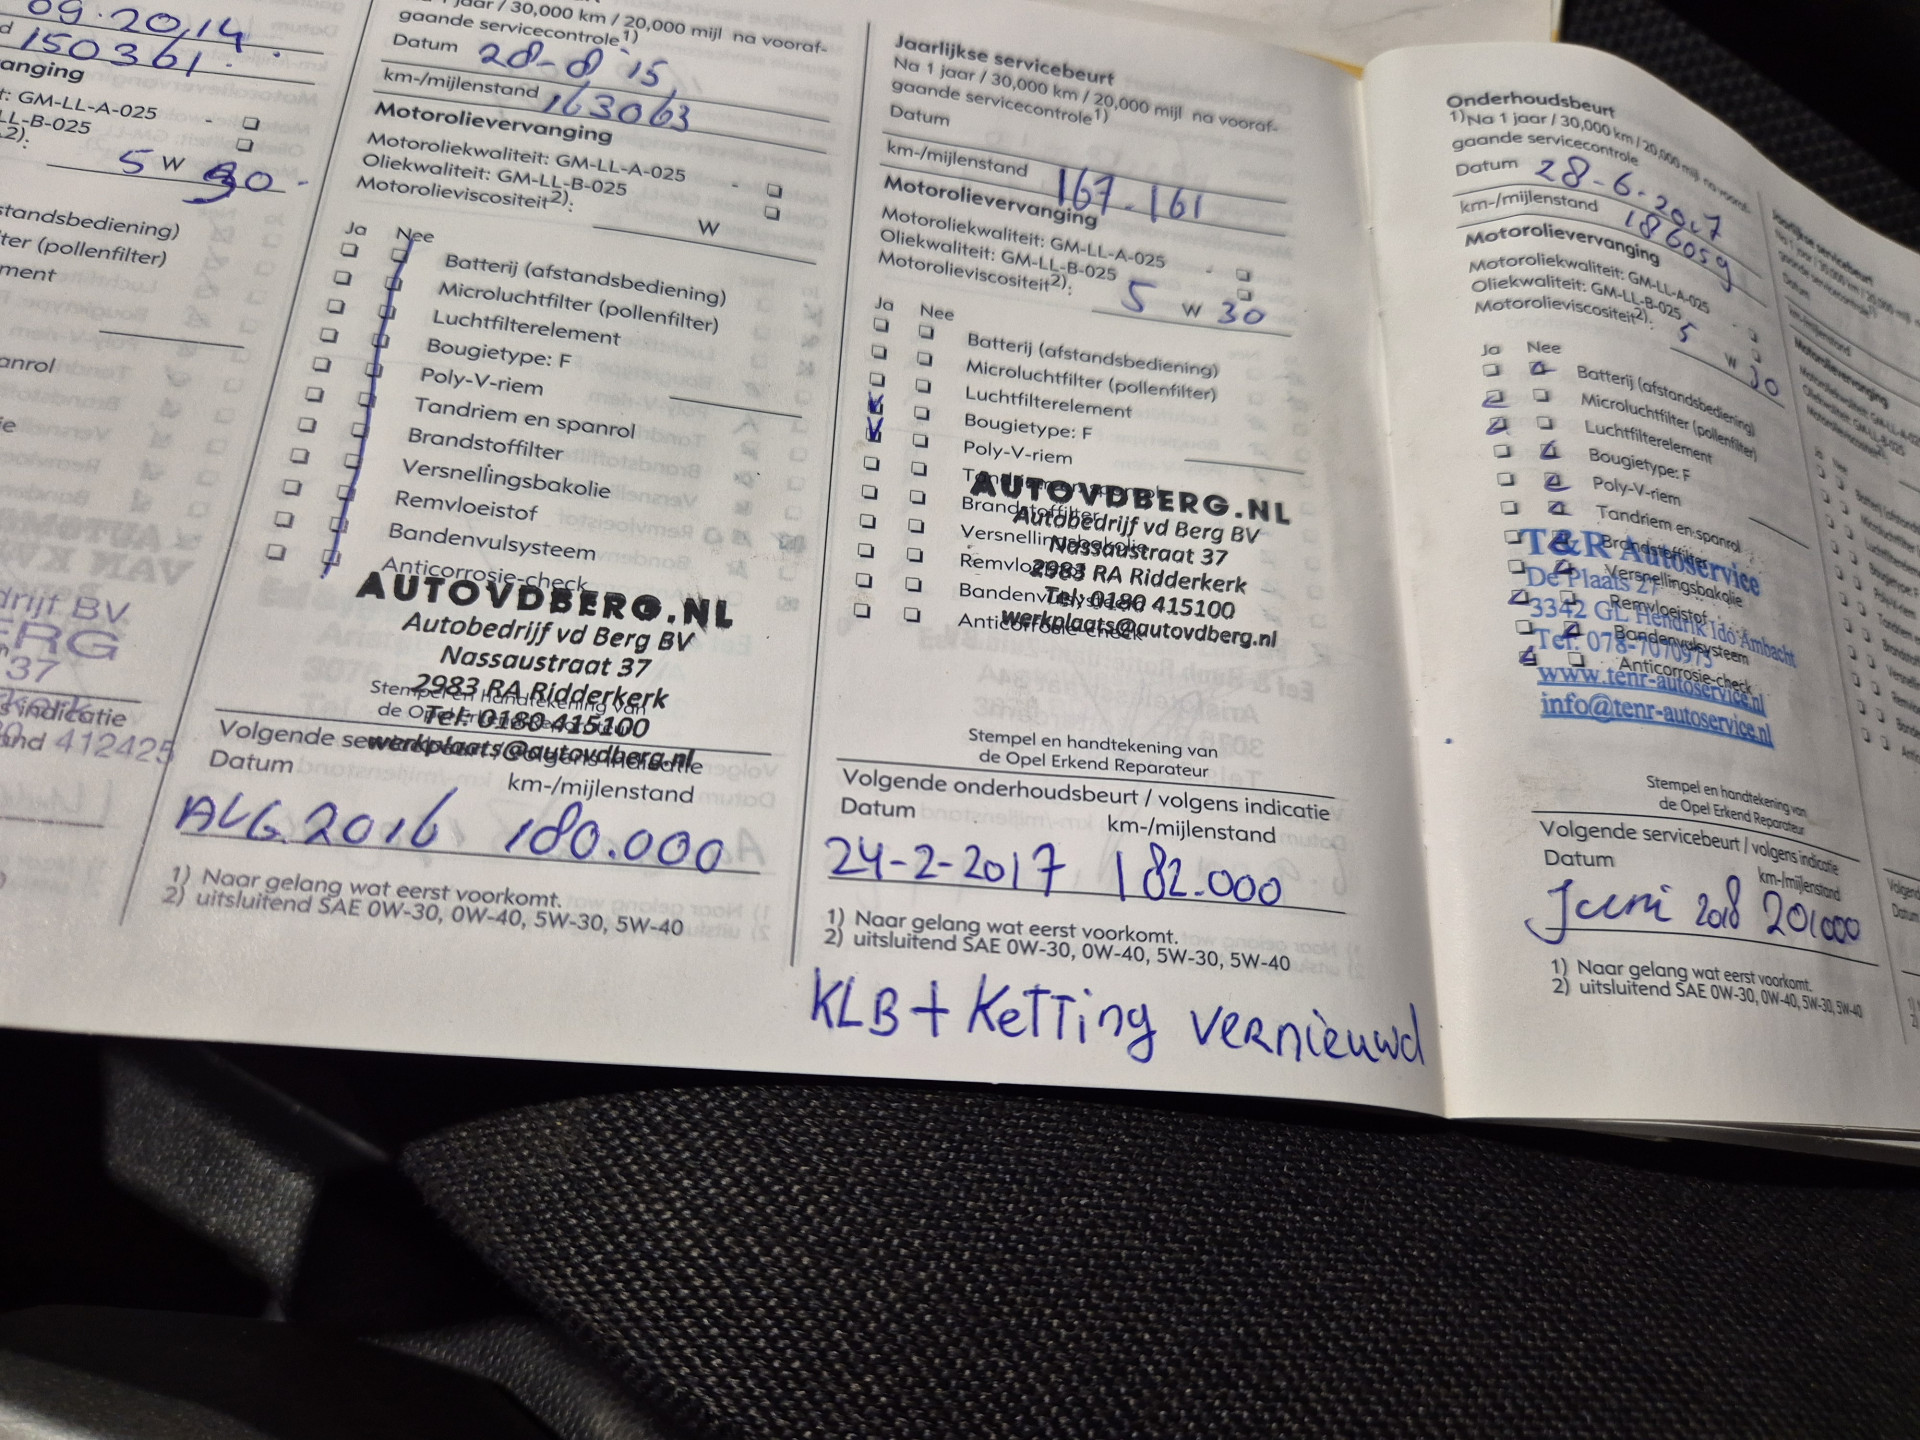 09.2014.
150361.
anging
t: GM-LL-A-025
LL-B-025
2):
5 W 30
standsbediening)
ter (pollenfilter)
ment
anrol
ie
drijf BV
ERG
37
s indicatie
and
412425
1 jaar / 30,000 km / 20,000 mijl na vooraf-
gaande servicecontrole1)
Datum 28-8 15
km-/mijlenstand 163063
Motorolievervanging
Motoroliekwaliteit: GM-LL-A-025
Oliekwaliteit: GM-LL-B-025
Motorolieviscositeit2): W
Ja Nee
Batterij (afstandsbediening)
Microluchtfilter (pollenfilter)
Luchtfilterelement
Bougietype: F
Poly-V-riem
Tandriem en spanrol
Brandstoffilter
Versnellingsbakolie
Remvloeistof
Bandenvulsysteem
Anticorrosie-check
AUTOVDBERG.NL
Autobedrijf vd Berg BV
Nassaustraat 37
2983 RA Ridderkerk
Tel: 0180 415100
werkplaats@autovdberg.nl
Stempel en handtekening van
de Opel
Volgende
volgens indicatie
Datum km-/mijlenstand
AUG. 2016 180.000
1) Naar gelang wat eerst voorkomt.
2) uitsluitend SAE 0W-30, 0W-40, 5W-30, 5W-40
Jaarlijkse servicebeurt
Na 1 jaar / 30,000 km / 20,000 mijl na vooraf-
gaande servicecontrole1)
Datum
km-/mijlenstand 167.161
Motorolievervanging
Motoroliekwaliteit: GM-LL-A-025
Oliekwaliteit: GM-LL-B-025
Motorolieviscositeit2): 5 W 30
Ja Nee
Batterij (afstandsbediening)
Microluchtfilter (pollenfilter)
Luchtfilterelement
Bougietype: F
Poly-V-riem
Brandstoffilter
Versnellingsbakolie
Anticorrosie-check
AUTOVDBERG.NL
Autobedrijf vd Berg BV
Nassaustraat 37
2983 RA Ridderkerk
Tel: 0180 415100
werkplaats@autovdberg.nl
Stempel en handtekening van
de Opel Erkend Reparateur
Volgende onderhoudsbeurt / volgens indicatie
Datum km-/mijlenstand
24-2-2017 182.000
1) Naar gelang wat eerst voorkomt.
2) uitsluitend SAE 0W-30, 0W-40, 5W-30, 5W-40
KLB + Ketting vernieuwd
Onderhoudsbeurt
1)Na 1 jaar / 30,000 km / 20,000 mijl na vooraf-
gaande servicecontrole
Datum 28-6-2017
km-/mijlenstand 186059
Motorolievervanging
Motoroliekwaliteit: GM-LL-A-025
Oliekwaliteit: GM-LL-B-025
Motorolieviscositeit2): 5 W 30
Ja Nee
Batterij (afstandsbediening)
Microluchtfilter (pollenfilter)
Luchtfilterelement
Bougietype: F
Poly-V-riem
Tandriem en spanrol
Brandstoffilter
Versnellingsbakolie
Remvloeistof
Bandenvulsysteem
Anticorrosie-check
T&R Autoservice
De Plaats 27
3342 GL Hendrik Ido Ambacht
Tel: 078-7070973
www.tenr-autoservice.nl
info@tenr-autoservice.nl
Stempel en handtekening van
de Opel Erkend Reparateur
Volgende servicebeurt / volgens indicatie
Datum km-/mijlenstand
Juni 2018 201000
1) Naar gelang wat eerst voorkomt.
2) uitsluitend SAE 0W-30, 0W-40, 5W-30, 5W-40